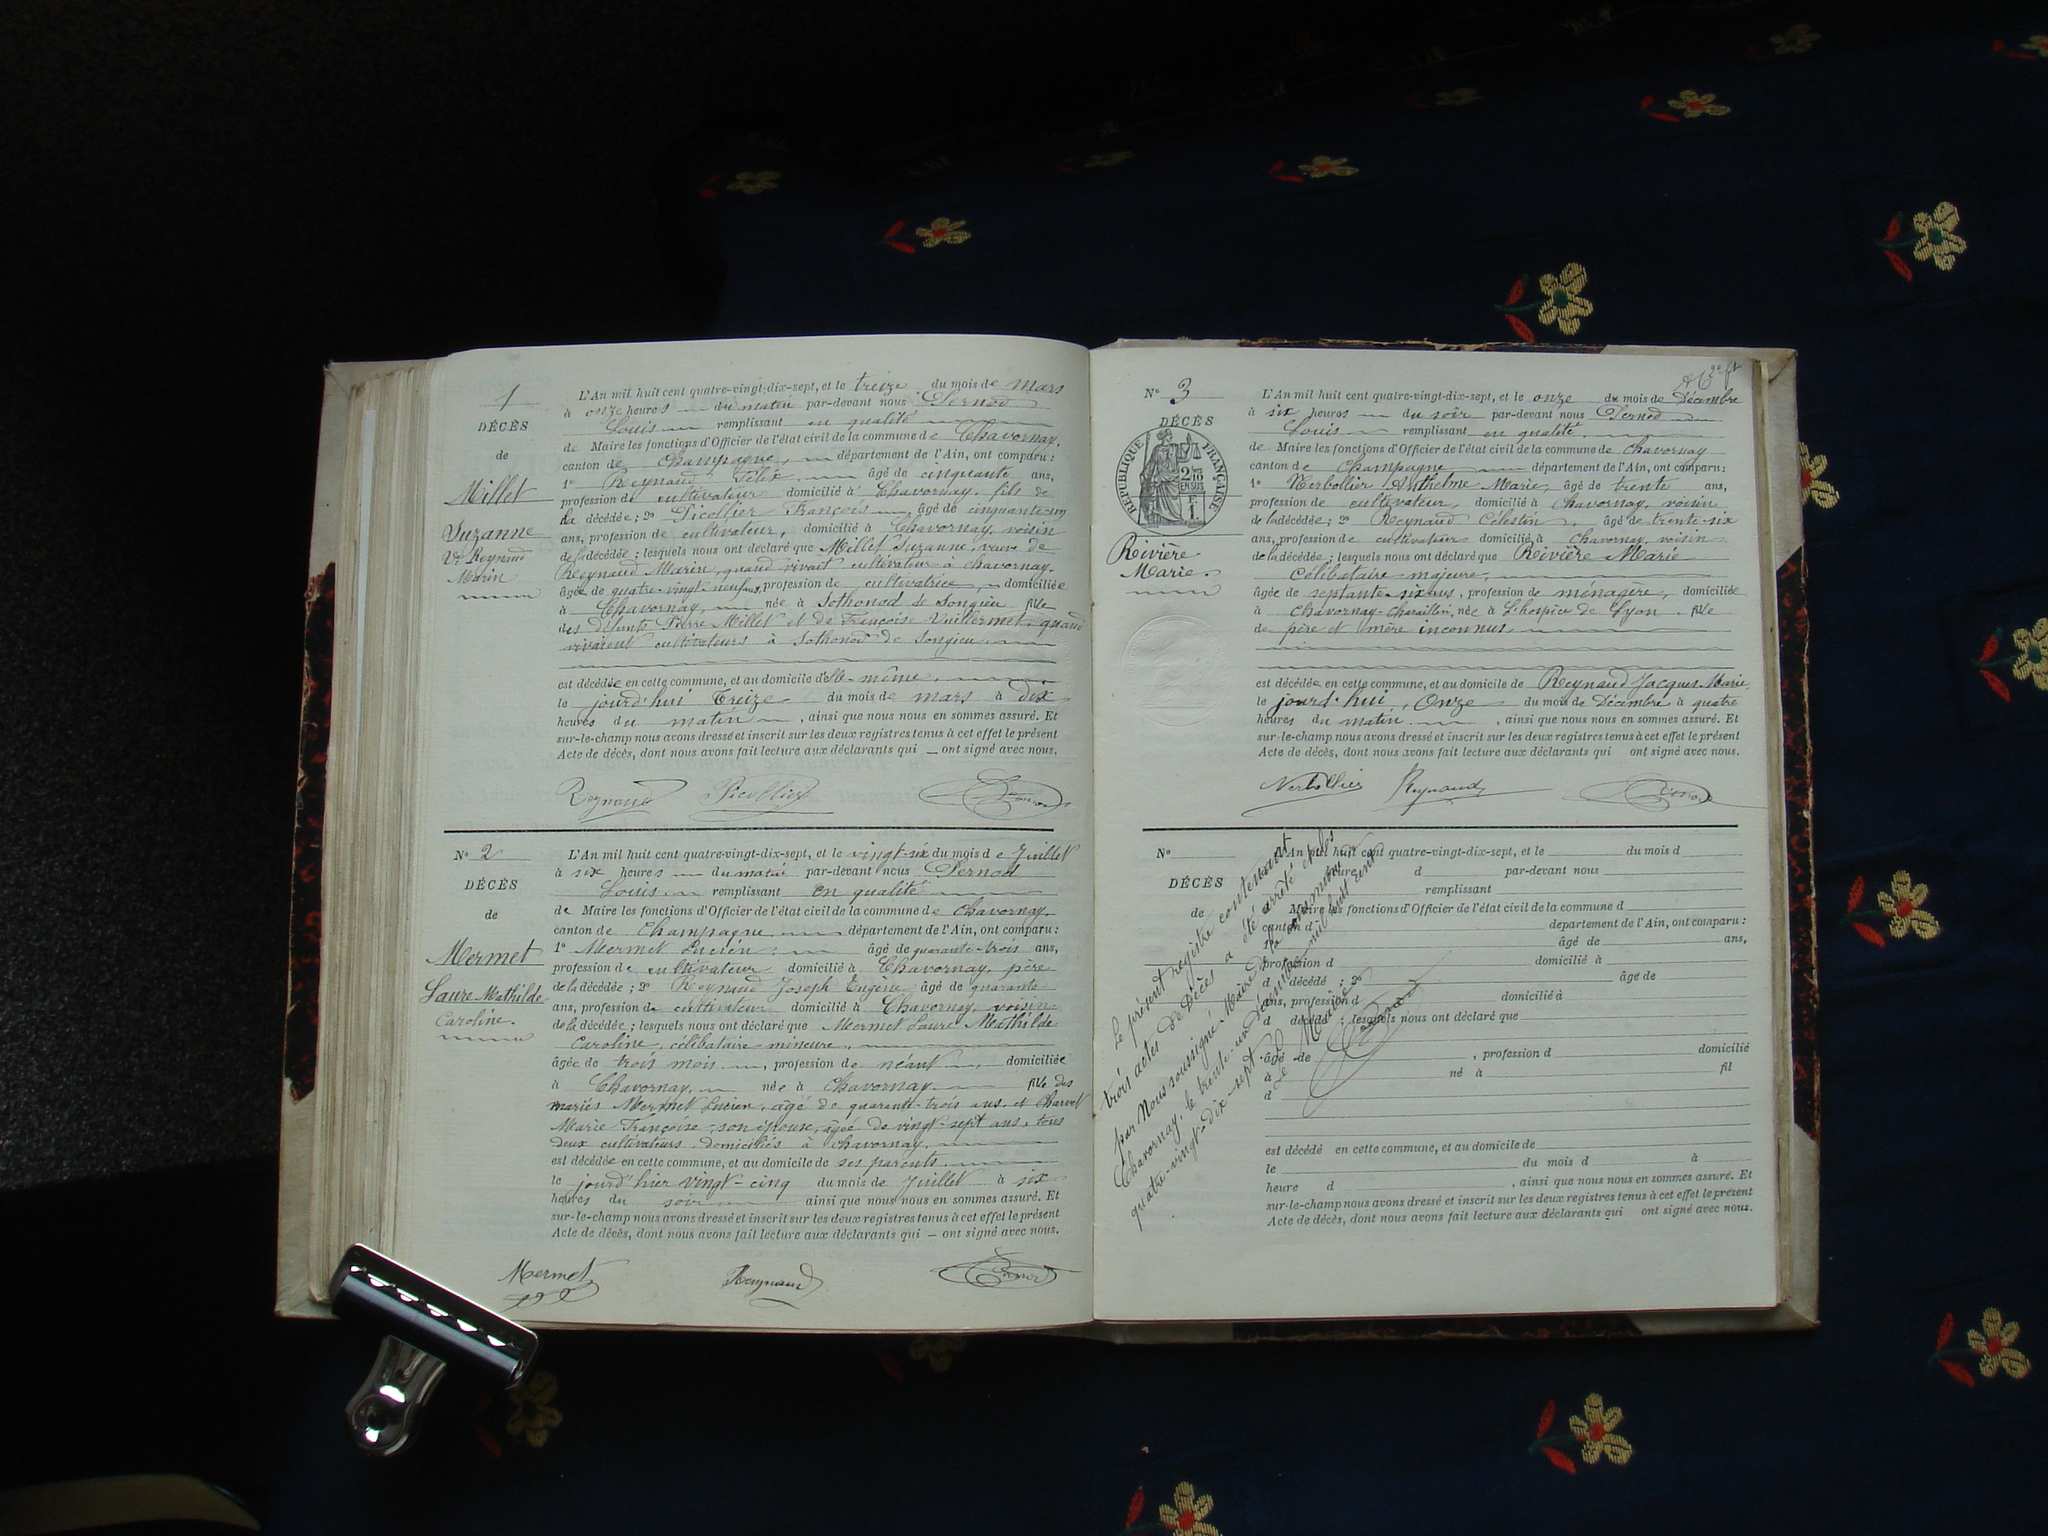 1
DÉCÈS
de
Millet
Suzanne
Vve Reynaud
Marin
L'An mil huit cent quatre-vingt-dix-sept, et le treize du mois de Mars
à onze heures du matin par-devant nous Pernod
Louis remplissant en qualité
de Maire les fonctions d'Officier de l'état civil de la commune de Chavornay,
canton de Champagne, département de l'Ain, ont comparu :
1° Reynaud Félix, âgé de cinquante ans,
profession de cultivateur domicilié à Chavornay, fils de
la décédée ; 2° Picollier François, âgé de cinquante-un
ans, profession de cultivateur, domicilié à Chavornay, voisin
de la décédée ; lesquels nous ont déclaré que Millet Suzanne, veuve de
Reynaud Marin, quand vivait cultivateur à Chavornay,
âgée de quatre-vingt-neuf ans, profession de cultivatrice, domiciliée
à Chavornay, née à Sothonod de Songieu fille
des défunts Pierre Millet et de Françoise Vuillermet, quand
vivaient cultivateurs à Sothonod de Songieu.
est décédée en cette commune, et au domicile d'Elle-même,
le jourd'hui Treize du mois de mars à dix
heures du matin, ainsi que nous nous en sommes assuré. Et
sur-le-champ nous avons dressé et inscrit sur les deux registres tenus à cet effet le présent
Acte de décès, dont nous avons fait lecture aux déclarants qui ont signé avec nous.
Reynaud Picollier Pernod
N° 2
DÉCÈS
de
Mermet
Laure Mathilde
Caroline.
L'An mil huit cent quatre-vingt-dix-sept, et le vingt-six du mois de Juillet
à six heures du matin par-devant nous Pernod
Louis remplissant en qualité
de Maire les fonctions d'Officier de l'état civil de la commune de Chavornay,
canton de Champagne, département de l'Ain, ont comparu :
1° Mermet Lucien, âgé de quarante-trois ans,
profession de cultivateur domicilié à Chavornay, père
de la décédée ; 2° Reynaud Joseph Eugène, âgé de quarante
ans, profession de cultivateur domicilié à Chavornay, voisin
de la décédée ; lesquels nous ont déclaré que Mermet Laure Mathilde
Caroline, célibataire mineure,
âgée de trois mois, profession de néant, domiciliée
à Chavornay, née à Chavornay, fille des
mariés Mermet Lucien, âgé de quarante-trois ans, et Charvet
Marie Françoise, son épouse, âgée de vingt-sept ans, tous
deux cultivateurs domiciliés à Chavornay,
est décédée en cette commune, et au domicile de ses parents,
le jourd'hier vingt-cinq du mois de Juillet à six
heures du soir ainsi que nous nous en sommes assuré. Et
sur-le-champ nous avons dressé et inscrit sur les deux registres tenus à cet effet le présent
Acte de décès, dont nous avons fait lecture aux déclarants qui ont signé avec nous.
Mermet Reynaud Pernod
N° 3
DÉCÈS
RÉPUBLIQUE FRANÇAISE
2/10 EN SUS
F.
1.
Rivière
Marie.
L'An mil huit cent quatre-vingt-dix-sept, et le onze du mois de Décembre
à six heures du soir par-devant nous Pernod
Louis remplissant en qualité
de Maire les fonctions d'Officier de l'état civil de la commune de Chavornay
canton de Champagne département de l'Ain, ont comparu :
1° Nerbollier Anthelme Marie, âgé de trente ans,
profession de cultivateur, domicilié à Chavornay, voisin
de la décédée ; 2° Reynaud Célestin, âgé de trente-six
ans, profession de cultivateur domicilié à Chavornay, voisin
de la décédée ; lesquels nous ont déclaré que Rivière Marie
célibataire majeure,
âgée de septante-six ans, profession de ménagère, domiciliée
à Chavornay- née à L'hospice de Lyon fille
de père et mère inconnus,
est décédée en cette commune, et au domicile de Reynaud Jacques-Marie,
le jourd'hui, Onze du mois de Décembre à quatre
heures du matin, ainsi que nous nous en sommes assuré. Et
sur-le-champ nous avons dressé et inscrit sur les deux registres tenus à cet effet le présent
Acte de décès, dont nous avons fait lecture aux déclarants qui ont signé avec nous.
Nerbollier Reynaud Pernod
N°
DÉCÈS
de
L'An mil huit cent quatre-vingt-dix-sept, et le du mois d
heures d par-devant nous
remplissant
Maire les fonctions d'Officier de l'état civil de la commune d
canton d département de l'Ain, ont comparu :
âgé de ans,
profession d domicilié à
d décédé ; 2° âgé de
ans, profession d domicilié à
d décédé ; lesquels nous ont déclaré que
âgé de , profession d domicilié
à né à fil
d
est décédé en cette commune, et au domicile de
le du mois d à
heure d , ainsi que nous nous en sommes assuré. Et
sur-le-champ nous avons dressé et inscrit sur les deux registres tenus à cet effet le présent
Acte de décès, dont nous avons fait lecture aux déclarants qui ont signé avec nous.
Le présent registre contenant
trois actes de Décès a été arrêté et clos
par Nous soussigné, Maire de la commune de
Chavornay, le trente-un Décembre mil huit cent
quatre-vingt-dix-sept
Le Maire
Pernod